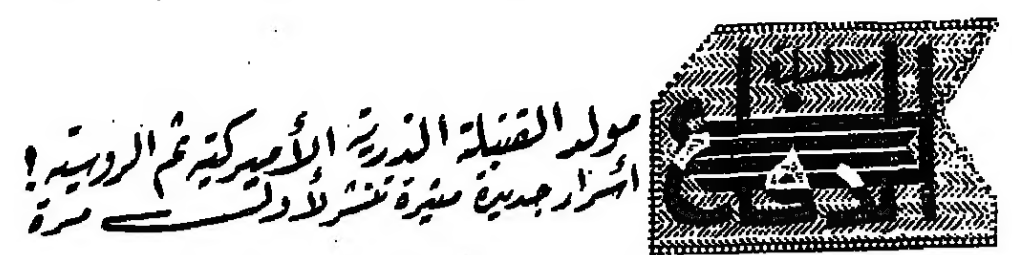 سلسلة
مولد القنبلة الذرية الأميركية ثم الروسية !
أسرار جديدة مثيرة تنشر لأول مرة